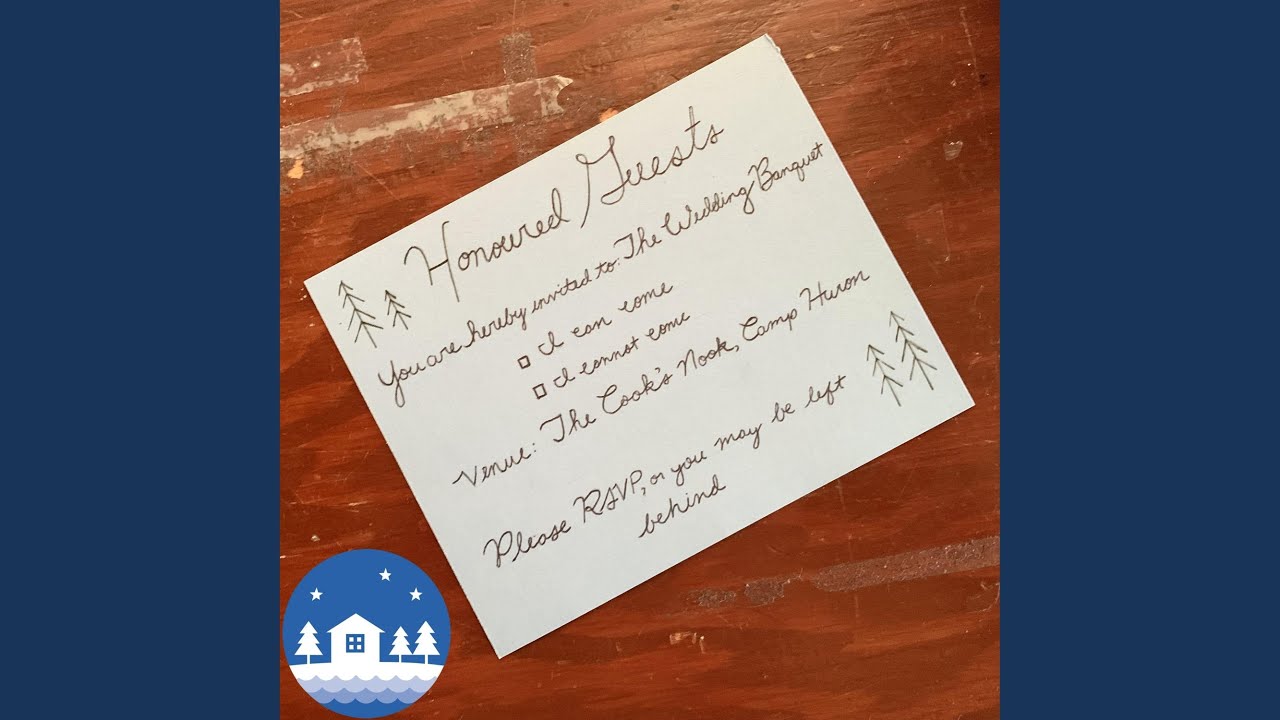 Honoured Guests
You are hereby invited to: The Wedding Banquet
I can come
I cannot come
Venue: The Cook's Nook, Camp Huron
Please RSVP, or you may be left
behind